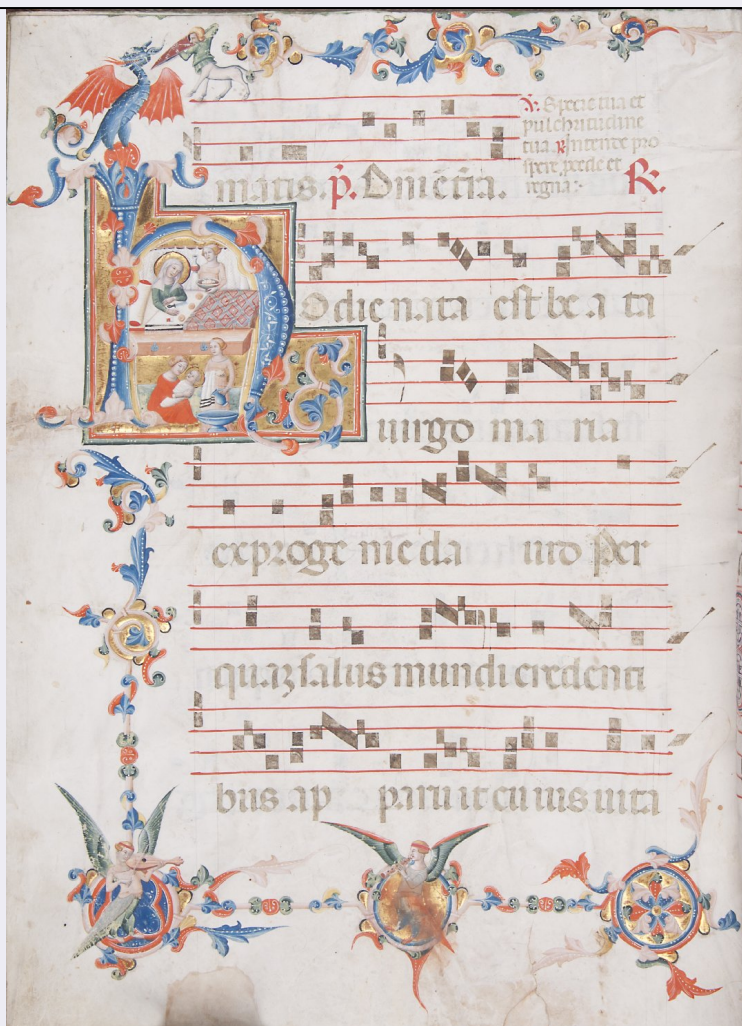 ℣. Specie tua et
pulchritudine
tua ℟ Intende pro
spere procede et
regna:-
matis. p̄. Dnīe tīa. ℟.
Hodie nata est be a ta
uirgo ma ria
ex proge nie da uid per
quaʒ salus mundi credenti
bus ap paru it cu ius uita